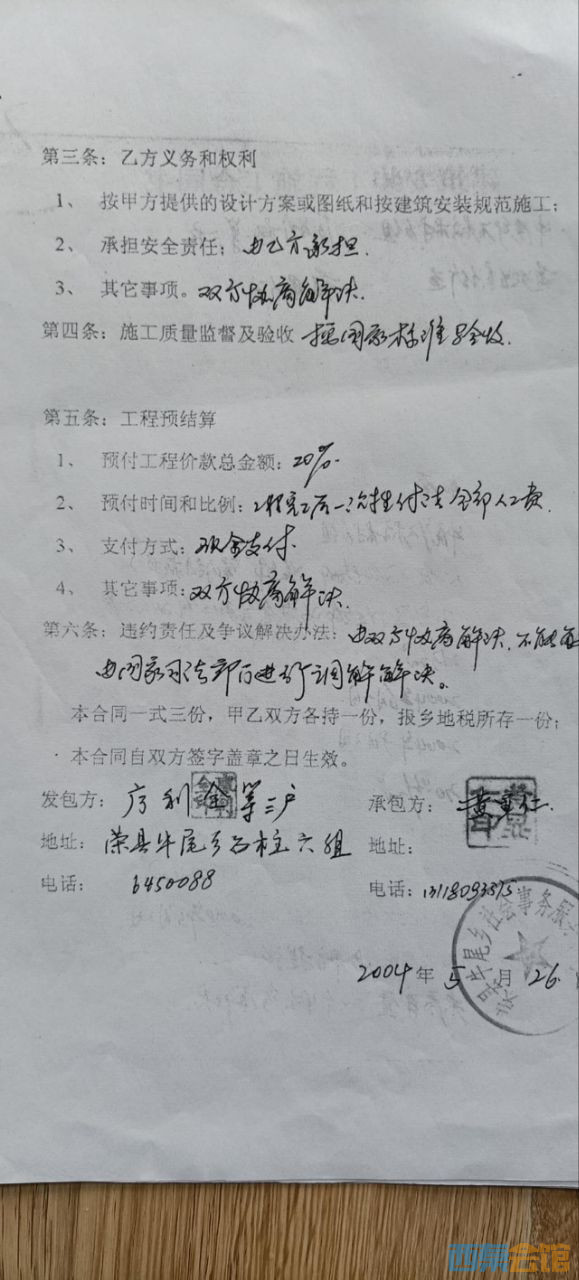 第三条：乙方义务和权利
1、 按甲方提供的设计方案或图纸和按建筑安装规范施工；
2、 承担安全责任；由乙方承担.
3、 其它事项。双方协商解决.
第四条：施工质量监督及验收 按国家标准验收.
第五条：工程预结算
1、 预付工程价款总金额：20%.
2、 预付时间和比例：工程完工后一次性付清全部人工费.
3、 支付方式：现金支付.
4、 其它事项：双方协商解决.
第六条：违约责任及争议解决办法：由双方协商解决.不能
由国家司法部门进行调解解决。
本合同一式三份，甲乙双方各持一份，报乡地税所存一份；
本合同自双方签字盖章之日生效。
发包方： 利金等三户
承包方：黄 仁
地址：荣县牛尾乡石柱六组
地址：
电话：6450088
电话：13118093575
2004年5月26
牛尾乡社会事务服
西京会馆